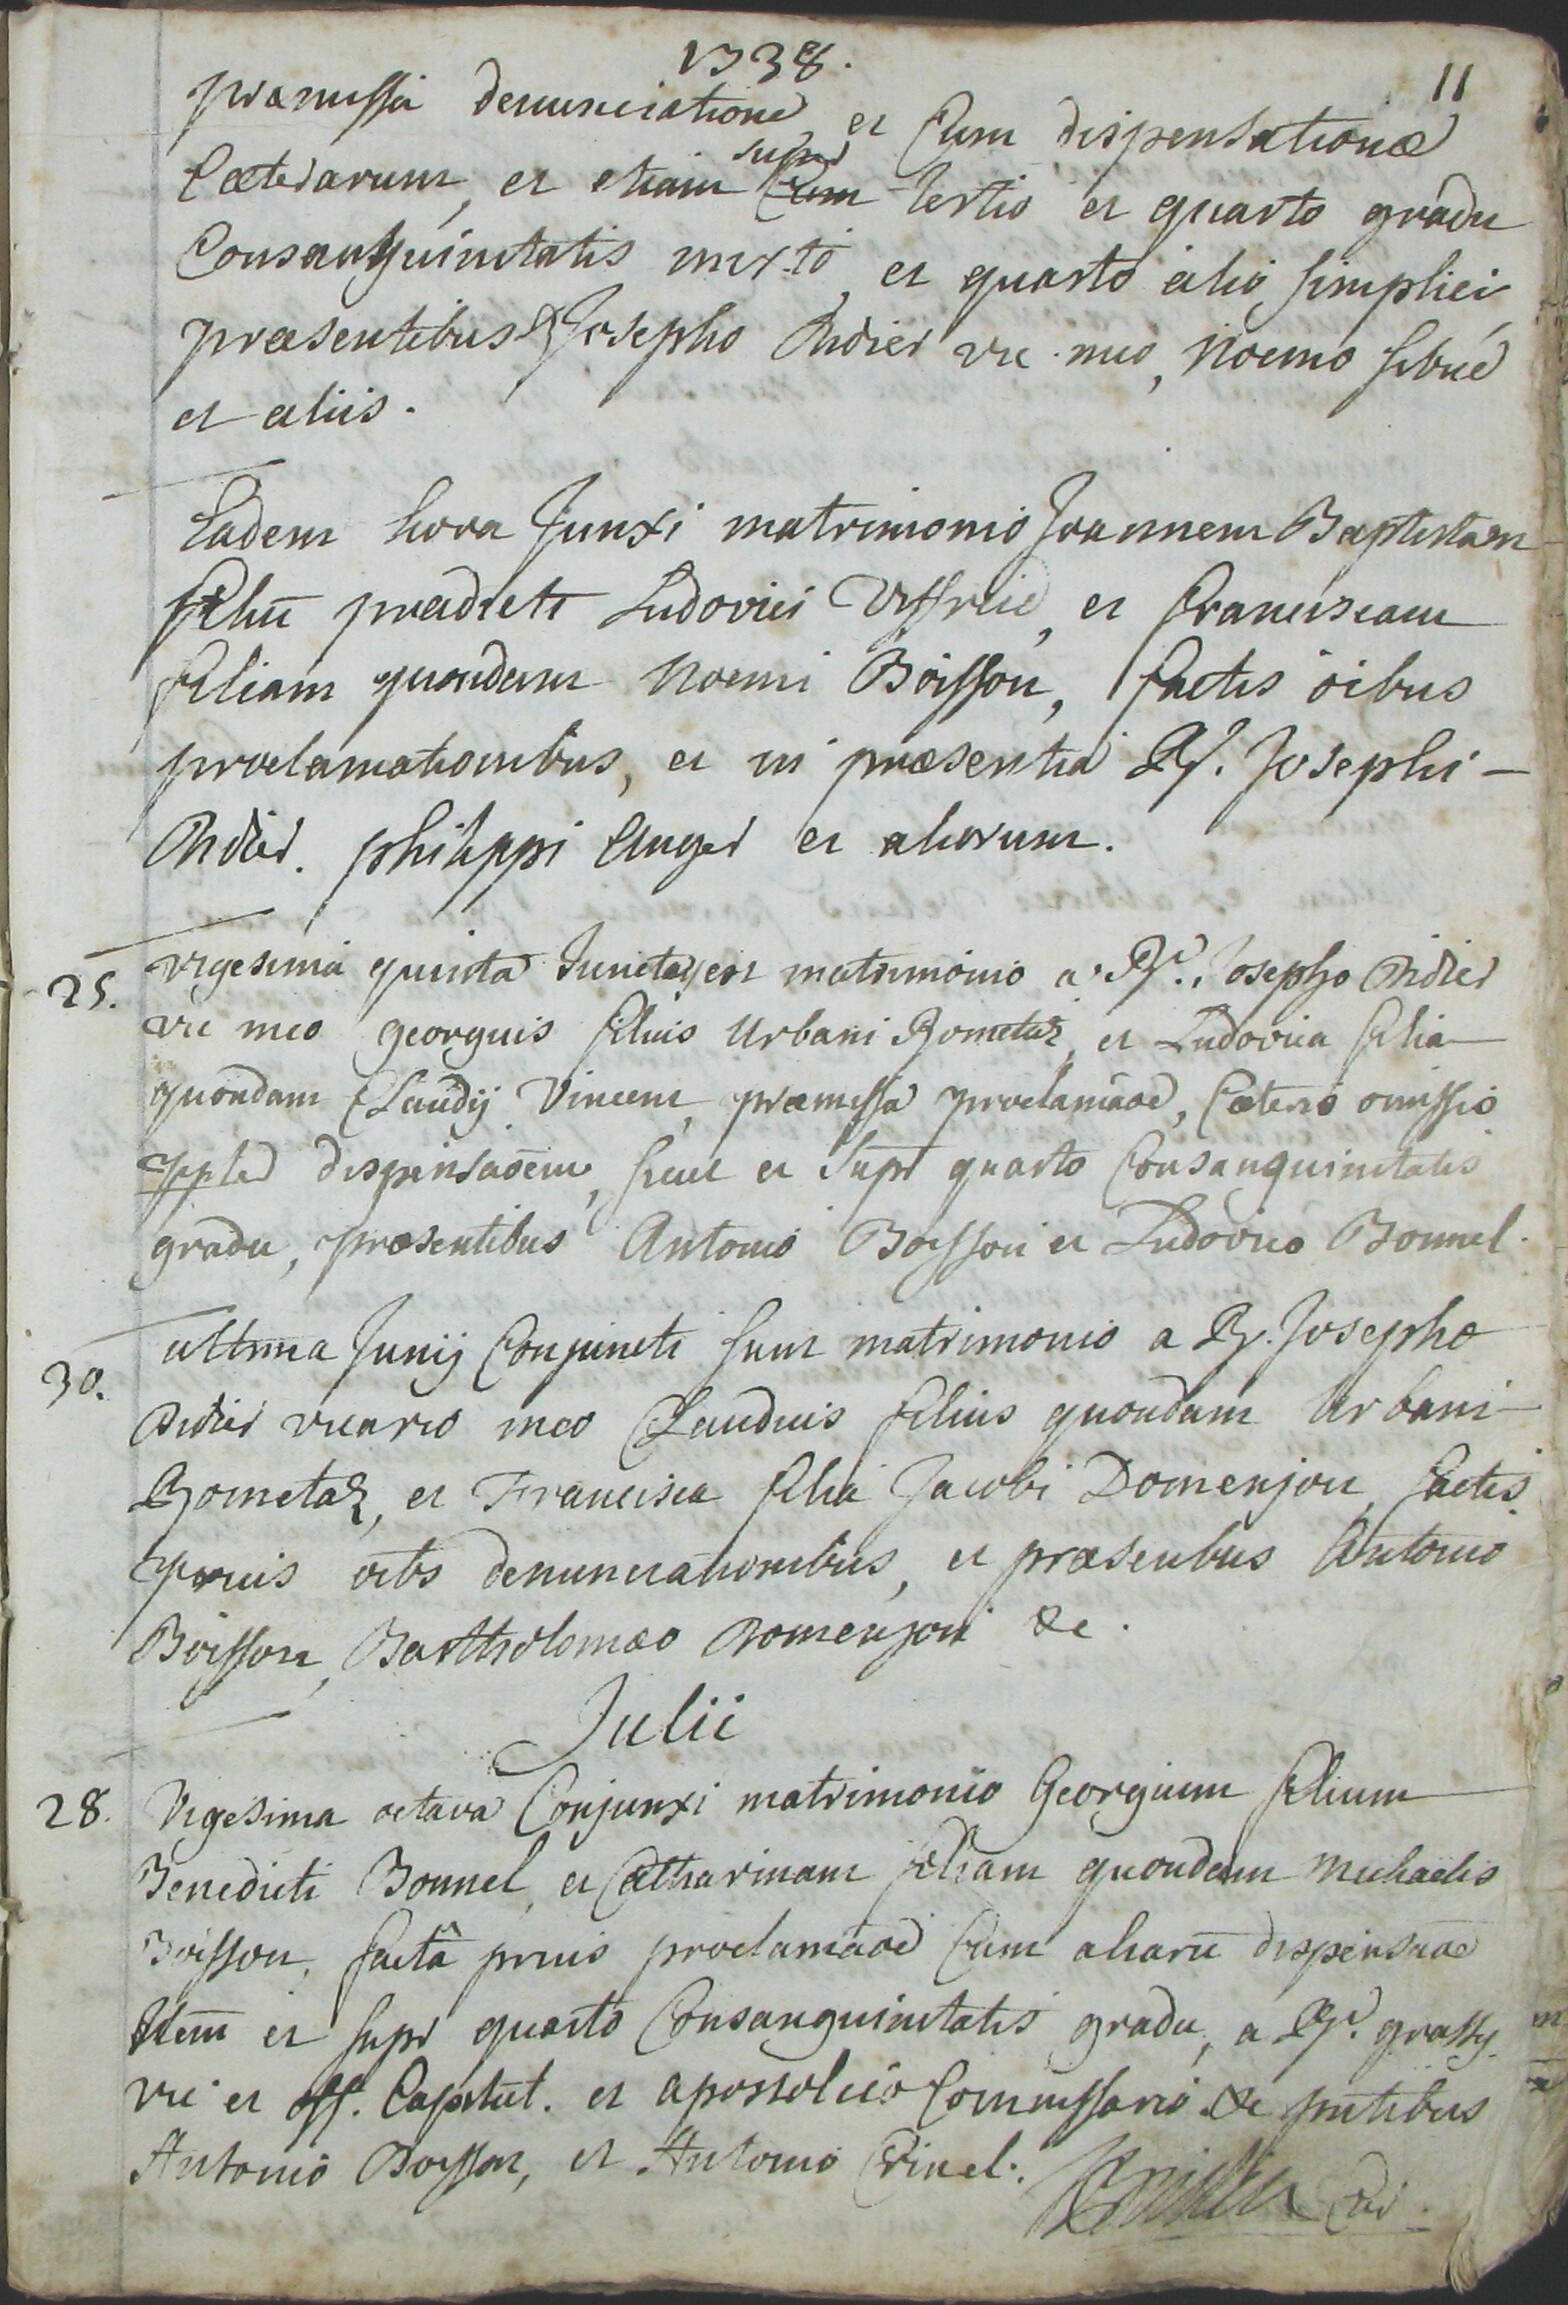 1738.
11
præmissa denunciatione, et Cum dispensatione
Cæterarum, et etiam super Cum tertio et quarto gradu
Consanguinitatis mixto, et quarto alio simplici
præsentibus R. Josepho Didier vic. meo, Noemo
et aliis.
Eadem hora Junxi matrimonio Joannem Baptistam
filiū prædicti Ludovici et Franciscam
filiam quondam Noemi Boisson, factis oibus
proclamationibus, et in præsentia Rd. Josephi
Didier. philippi Auger et aliorum.
25. Vigesima quinta Juncta est matrimonio a Rd. Josepho Didier
vic meo georgius filius Urbani Rometaz, et Ludovica filia
quondam Claudij Vincent, præmissa proclamaōe, Cæteris omissis
dispensaōem, sicut et Supr quarto Consanguinitatis
gradu, præsentibus Antonio Boisson et Ludovico Bonnel.
30. ultima Junij Conjuncti sunt matrimonio a R. Josepho
Didier vicario meo Claudius filius quondam Urbani
Rometaz, et Francisca filia Jacobi Domenjon, factis
prius oībs denunciationibus, et præsentibus Antonio
Boisson, Bartholomæo Domenjon &c.
Julii
28. Vigesima octava Conjunxi matrimonio Georgium filium
Benedicti Bonnel, et Catharinam filiam quondam Michaelis
Boisson, factâ prius proclamaōe Cum aliarū dispensaōe
Item et supr quarto Consanguinitatis gradu, a Rd. grassy
vic et off. Capitul. et apostolico Commissario &c pntibus
Antonio Boisson, et Antonio Crinel.